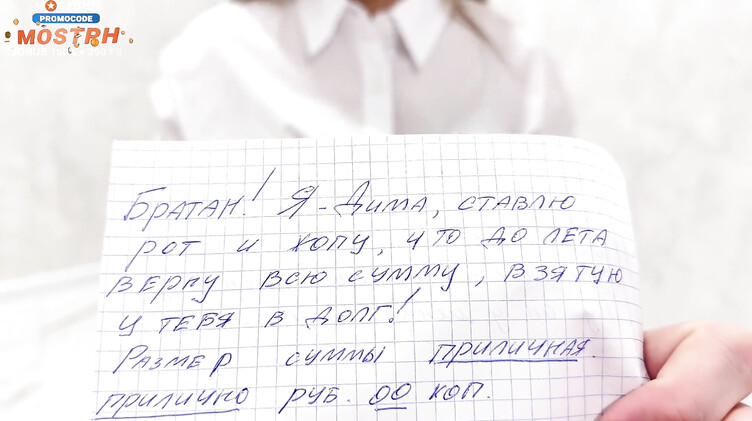 PROMOCODE
MOSTRH
Братан! Я - Дима, ставлю
рот и жопу, что до лета
верну всю сумму, взятую
у тебя в долг!
Размер суммы приличная.
прилично руб. 00 коп.